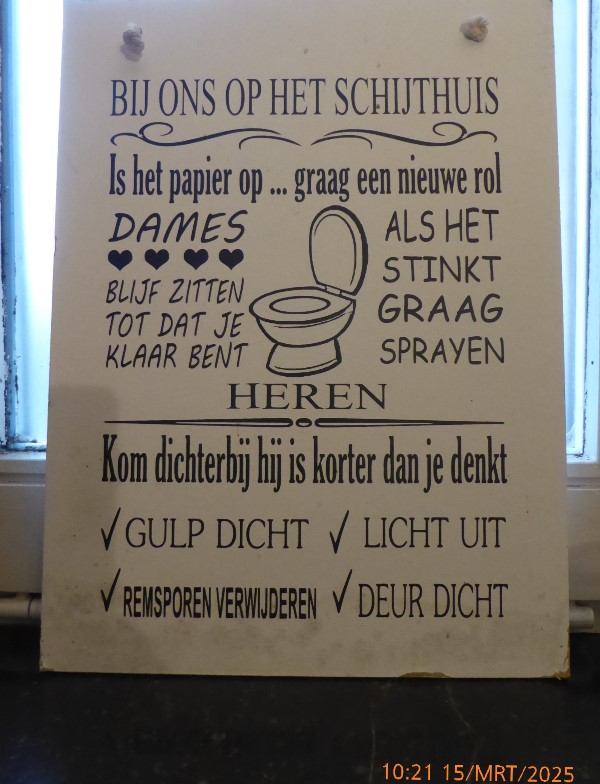 BIJ ONS OP HET SCHIJTHUIS
Is het papier op ... graag een nieuwe rol
DAMES
BLIJF ZITTEN
TOT DAT JE
KLAAR BENT
ALS HET
STINKT
GRAAG
SPRAYEN
HEREN
Kom dichterbij hij is korter dan je denkt
✓ GULP DICHT ✓ LICHT UIT
✓ REMSPOREN VERWIJDEREN ✓ DEUR DICHT
10:21 15/MRT/2025